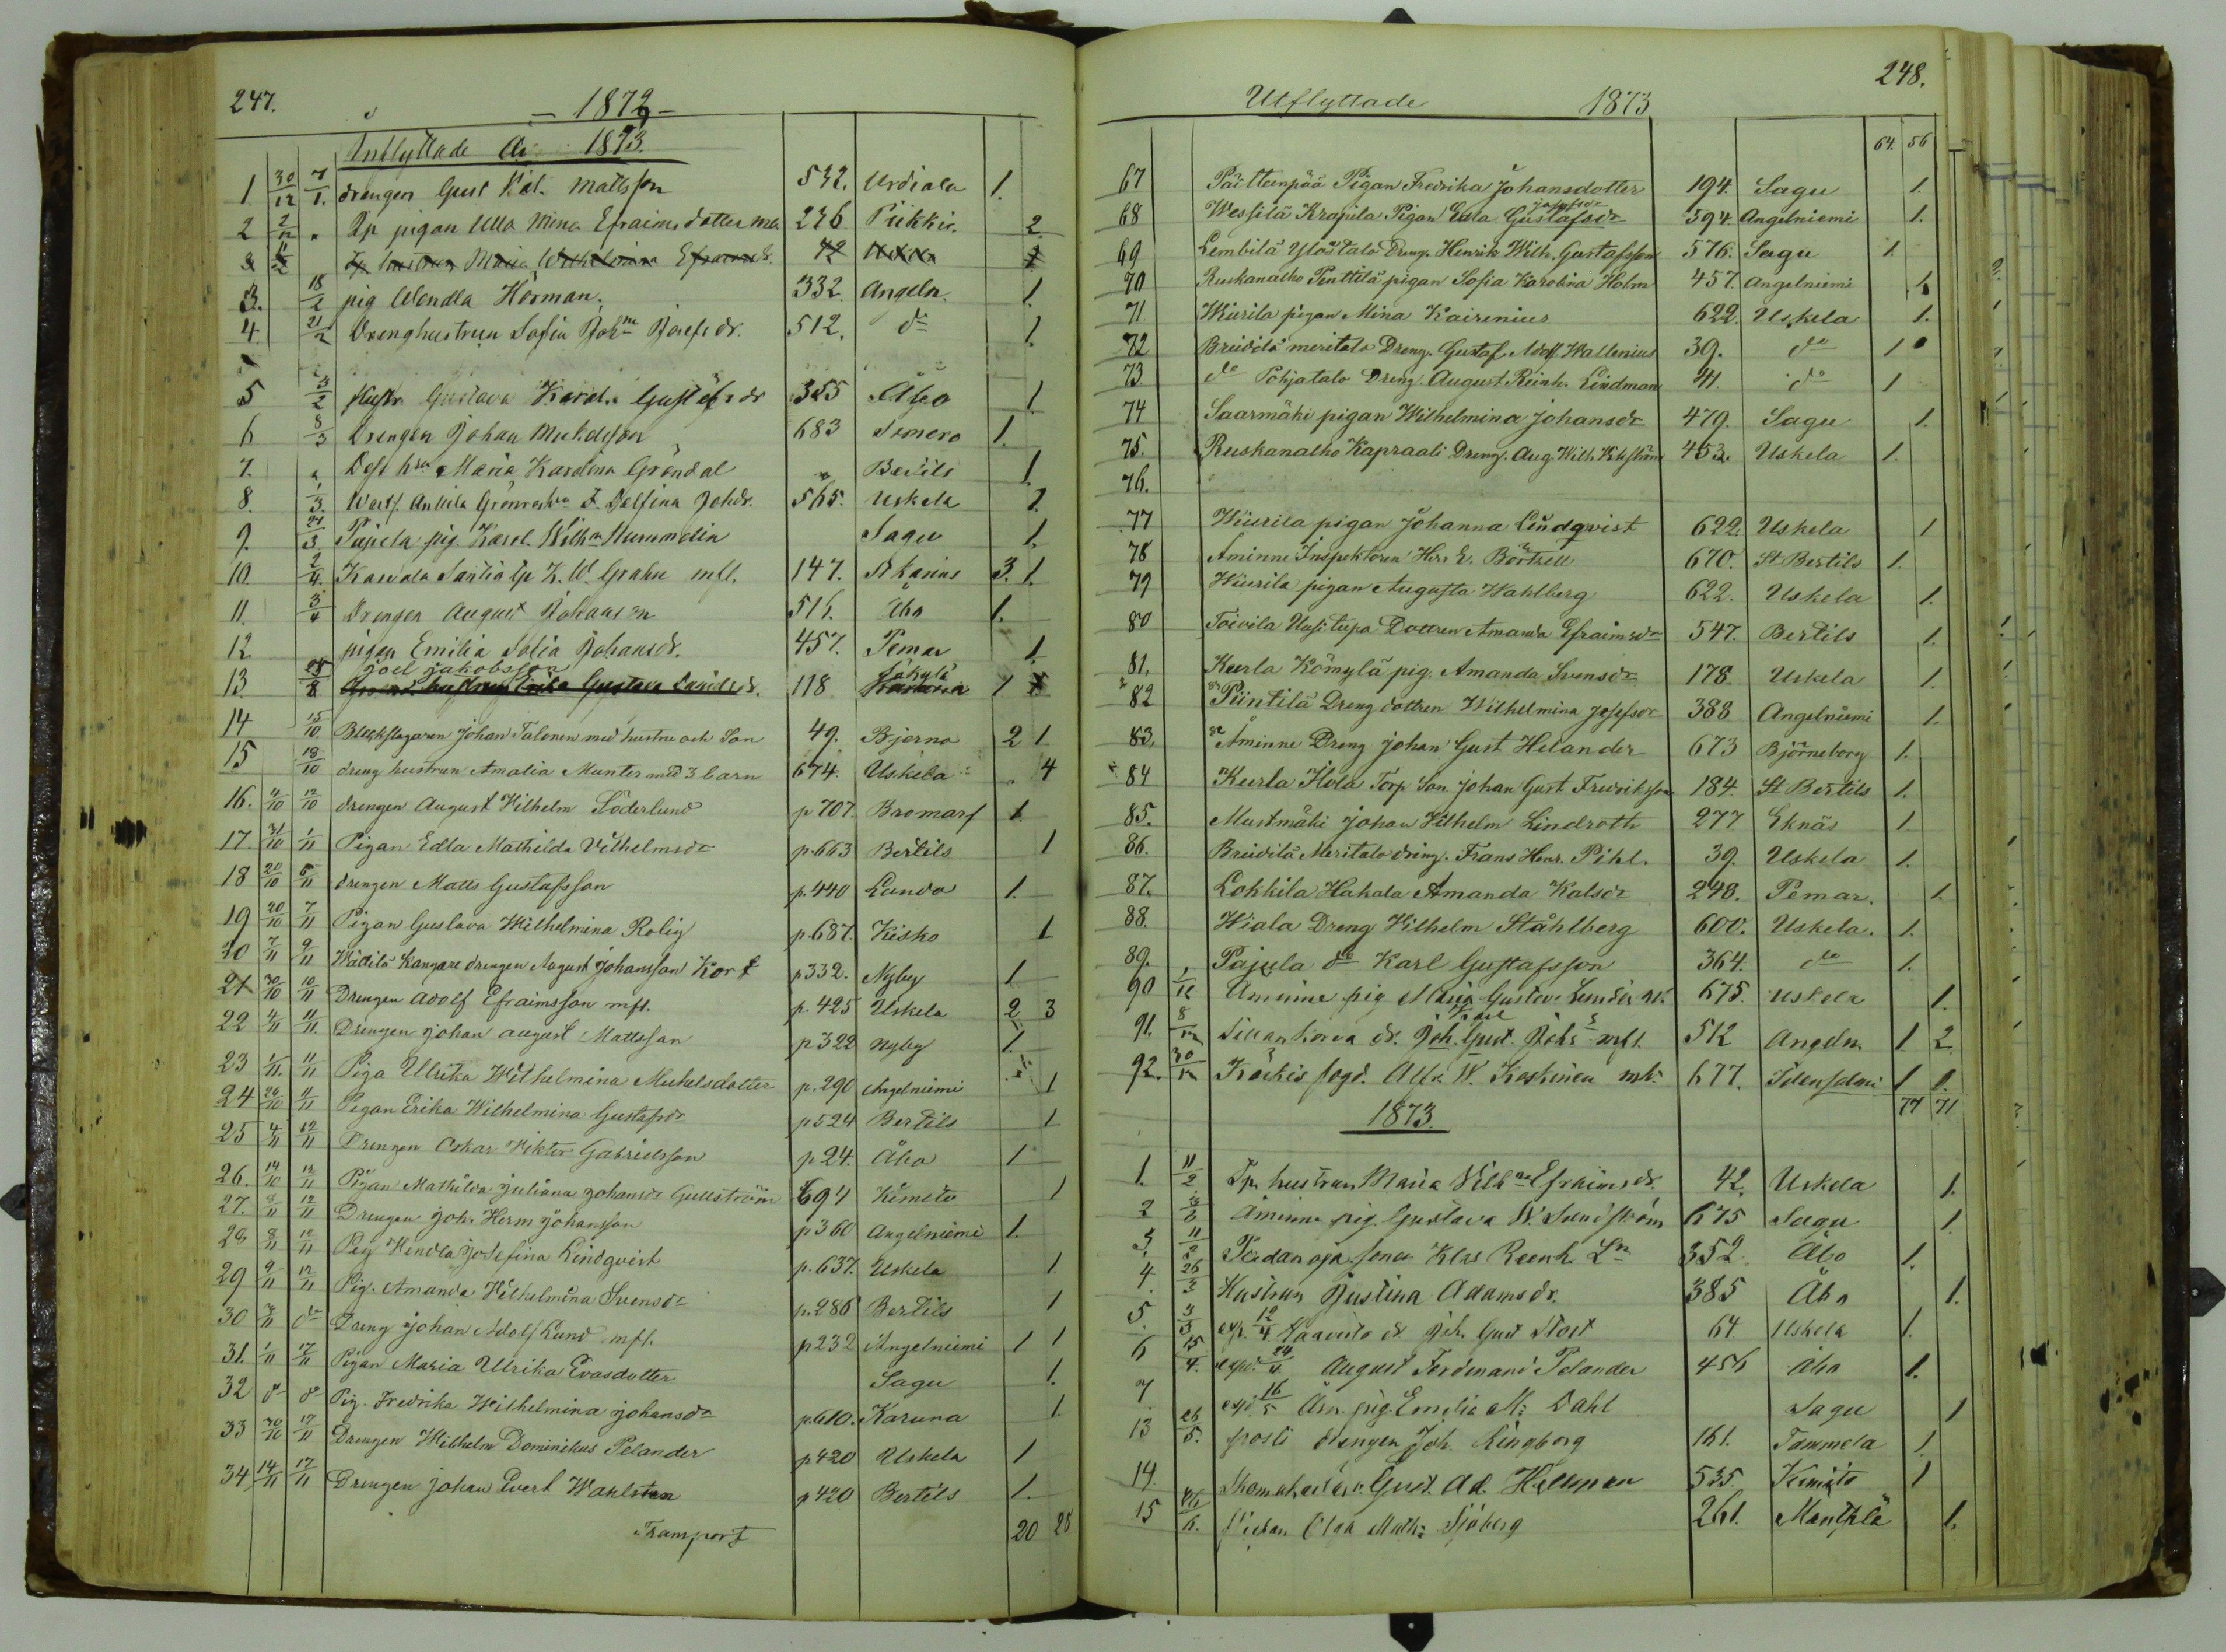 247.
- 1872 -
Inflyttade År 1873.
1. 30/12 7/1. drengen Gust Kal. Mattsson 532. Urdiala 1.
2 2/12 " Tp pigan Ulla Mina Efraimsdotter 236 Piikkis. 2.
3 Tp hustrun Maria Wilhelmina Efraimsdr. 42 Uskela 1
3. 18/2 pig Wendla Hörman. 332 Angeln. 1.
4. 21/2 Drenghustrun Sofia Joh:na Josefsdr. 512. do 1.
5 3/2 Hustr. Gustava Karol. Gustafsdr 355 Åbo 1.
6 8/3 Drengen Johan Mickelsson 683 Somero 1.
7. " Maria Karolina Gröndal " Bertils 1.
8. 1/3. Anttila Delfina Johdr. 565. Uskela 1.
9. 27/3 Pajula pig. Karol. Wilh:a Nummelin Sagu 1.
10. 2/4. Karvala Santio tp K. W. Grahn mfl. 147. St Karins 3. 1.
11. 3/4 Drengen August Johansson 516. Åbo 1.
12. pigan Emilia Sofia Johansdr. 457. Pemar 1.
Joel Jakobsson Säkylä
13 hustrun Erika Gustava Davidsdr. 118 1 1
14 15/10 Bleckslagaren Johan Talonen med hustru och Son 49. Bjerno 2 1
15 18/10 dreng hustrun Amalia Munter med 3 barn 674. Uskela 4
16. 4/10 12/10 drengen August Vilhelm Söderlund p 707. Bromarf 1
17. 31/10 1/11 Pigan Edla Mathilda Vilhelmsdr p. 663 Bertils 1
18 20/10 5/11 drengen Matts Gustafsson p. 440 Lundo 1.
19 20/10 7/11 Pigan Gustava Wilhelmina Rolig p. 687. Kisko 1
20 7/11 9/11 Wädilä Kangare drengen August Johansson Kort p 332. Nyby 1
21 30/10 10/11 Drengen Adolf Efraimsson mfl. p. 425 Uskela 2 3
22 4/11 11/11. Drengen Johan August Mattsson p 322 Nyby 1.
23 1/11. 11/11 Piga Ulrika Wilhelmina Michelsdotter p. 290 Angelniemi 1
24 26/10 11/11 Pigan Erika Wilhelmina Gustafsdr p 524 Bertils 1
25 4/11 12/11 Drengen Oskar Viktor Gabrielsson p 24. Åbo 1
26. 14/10 12/11 Pigan Mathilda Juliana Johansdr Gullström 694 Kimito 1
27. 8/11 12/11 Drengen Joh. Herm Johansson p 360 Angelniemi 1.
28 8/11 12/11 Pig Wendla Josefina Lindqvist p. 637. Uskela 1
29 9/11 12/11 Pig. Amanda Wilhelmina Svensdr p. 286 Bertils 1
30 3/11 do Dreng Johan Adolf Lund mfl. p 232 Angelniemi 1 1
31. 1/11 17/11 Pigan Maria Ulrika Evasdotter Sagu 1.
32 do do Pig. Fredrika Wilhelmina Johansdr p. 610. Karuna 1
33 30/10 17/11 Drengen Wilhelm Dominikus Pelander p 420 Uskela 1
34 14/11 17/11 Drengen Johan Evert Wahlsten p 420 Bertils 1.
Transport 20 28
248.
Utflyttade 1873
64. 56
67 Päitteenpää Pigan Fredrika Johansdotter 194. Sagu 1.
Josefsdr
68 Wessilä Krapila Pigan Eva Gustafsdr 394. Angelniemi 1.
69 Lembilä Ylöstalo Dreng. Henrik Wilh. Gustafsson 576. Sagu 1.
70 Ruskanalho Penttilä pigan Sofia Karolina Holm 457. Angelniemi 1
71 Wiurila pigan Mina Kairenius 622. Uskela 1.
72 Briidilä meritalo Dreng. Gustaf Adolf Wallenius 39. do 1
73 do Pohjatalo Dreng. August Reinh. Lindman 41 do 1
74 Saarmäki pigan Wilhelmina Johansdr 479. Sagu 1.
75. Ruskanalho Kapraali Dreng. Aug. Wilh. 453. Uskela 1.
76.
77 Wiurila pigan Johanna Lindqvist 622. Uskela 1
78 Åminne Inspektoren Herr E. Bortzell 670. St Bertils 1.
79 Wiurila pigan Augusta Wahlberg 622. Uskela 1.
80 Toivila Uusitupa Dottren Amanda Efraimsdr 547. Bertils 1.
81. Keerla Kömylä pig. Amanda Svensdr 178. Uskela 1.
82 Piintilä Dreng dottren Wilhelmina Josefsdr 388 Angelniemi 1.
83. Åminne Dreng Johan Gust Helander 673 Björneborg 1.
84 Keerla Ilola Torp Son Johan Gust Fredriksson 184. St Bertils 1.
85. Mustmäki Johan Wilhelm Lindroth 277 Eknäs 1.
86. Briidilä Meritalo dreng. Frans Henr. Pihl. 39. Uskela 1.
87. Lokkila Hakala Amanda Kalsdr 248. Pemar. 1.
88. Wiala Dreng Wilhelm Ståhlberg 600. Uskela. 1.
89. Pajula do Karl Gustafsson 364. do 1.
90 1/12 Åminne pig Maria Gustava 675. Uskela 1.
91. 8/12 dr. Joh. Gust. Johs mfl. 512 Angeln. 1 2.
92. 30/12 Kärkis fogd. Alfr W. Koskinen 677. Idensalmi 1 1.
77 71
1873.
1. 11/2 Tp. hustrun Maria Vilh:na Efraimsdr. 42. Uskela 1.
2 Åminne pig. Gustava W. Sundström 675 Sagu 1.
3 11/3 sonen Klas Reinh. Ln 352. Åbo 1.
4 26/3 Hustrun Justina Adamsdr. 385 Åbo 1.
5. 3/3 exp. 12/4 Kaavisto dr Joh. Gust Stost 64 Uskela 1.
6 15/4. exped. 24/4 August Ferdinand Pelander 456 Åbo 1.
7 exp 16/5 Åm. pig. Emilia M: Dahl Sagu 1
13 26/5. drengen Joh. Ringborg 161. Tammela 1.
14. Gust. Ad. Hellman 535. Kimito 1
15 pigan Olga Math: Sjöberg 261. Mäntsälä 1.